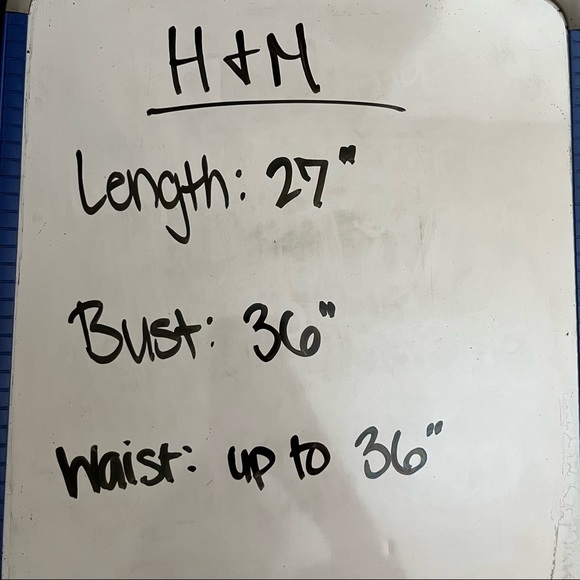 H & M
Length: 27"
Bust: 36"
Waist: up to 36"